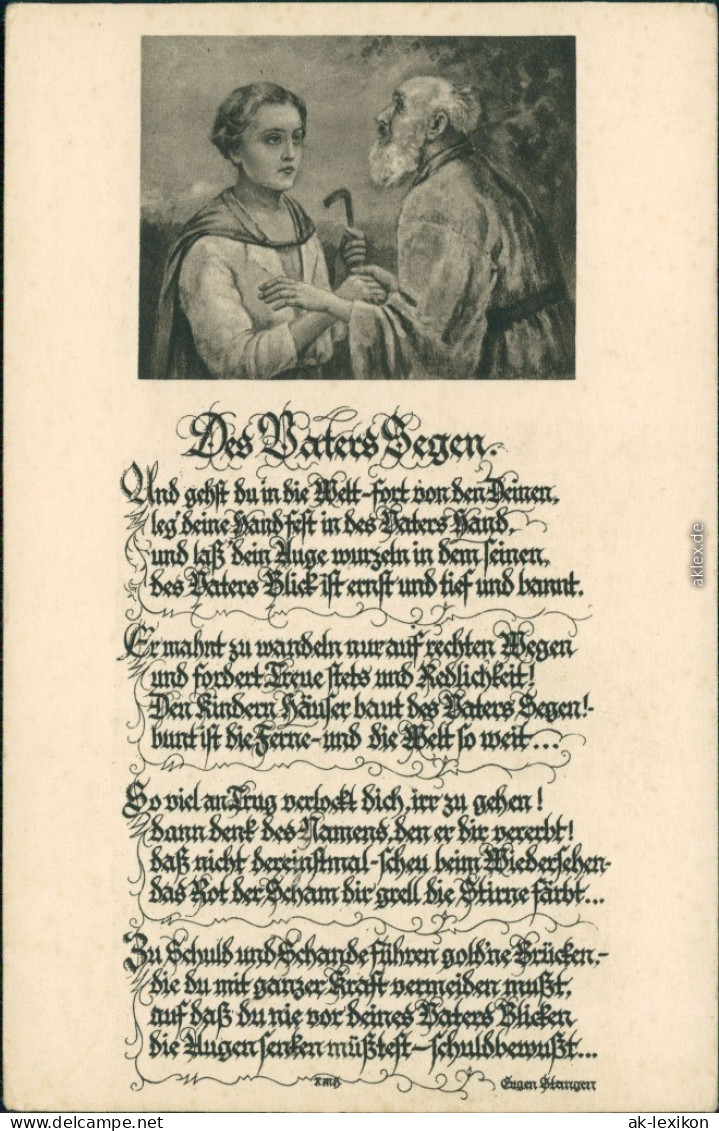 Des Vaters Segen.
Und gehst du in die Welt-fort von den Deinen,
leg' deine Hand fest in des Vaters Hand,
und laß dein Auge wurzeln in dem seinen,
des Vaters Blick ist ernst und tief und bannt.
Er mahnt zu wandeln nur auf rechten Wegen
und fordert Treue stets und Redlichkeit!
Den Kindern Häuser baut des Vaters Segen!-
bunt ist die Ferne-und die Welt so weit...
So viel an Trug verlockt dich, irr zu gehen!
dann denk des Namens, den er dir vererbt!
daß nicht dereinstmal-scheu beim Wiedersehen-
das Rot der Scham dir grell die Stirne färbt...
Zu Schuld und Schande führen gold'ne Brücken,-
die du mit ganzer Kraft vermeiden mußt,
auf daß du nie vor deines Vaters Blicken
die Augen senken müßtest-schuldbewußt...
Eugen Stangen
aklex.de
© ak-lexikon